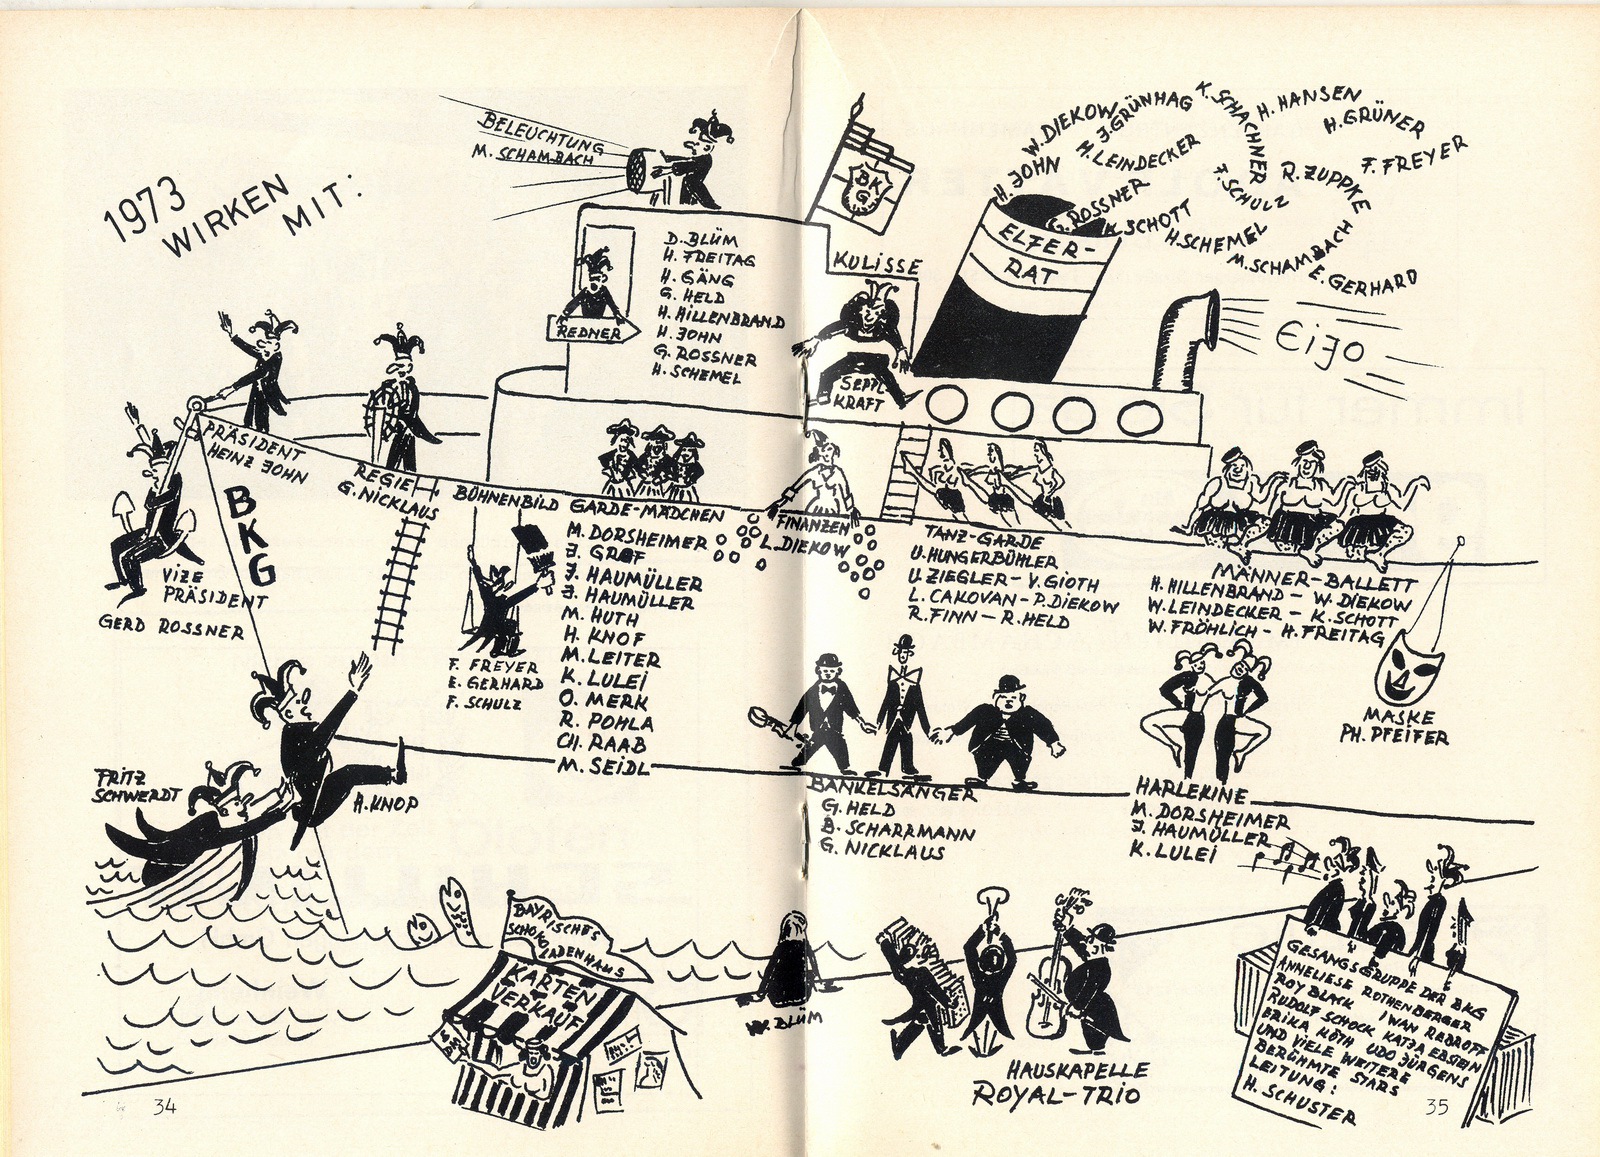 1973
WIRKEN
MIT:
BELEUCHTUNG
M. SCHAMBACH
REDNER
D. BLÜM
H. FREITAG
H. GÄNG
G. HELD
H. HILLENBRAND
H. JOHN
G. ROSSNER
H. SCHEMEL
BKG
KULISSE
SEPPL
KRAFT
ELFER-
RAT
H. JOHN
W. DIEKOW
J. GRÜNHAG
H. LEINDECKER
G. ROSSNER
K. SCHOTT
K. SCHACHNER
H. HANSEN
H. GRÜNER
F. FREYER
R. ZUPPKE
F. SCHULZ
H. SCHEMEL
M. SCHAMBACH
E. GERHARD
EiJO
PRÄSIDENT
HEINZ JOHN
REGIE
G. NICKLAUS
BKG
VIZE
PRÄSIDENT
GERD ROSSNER
BÜHNENBILD
F. FREYER
E. GERHARD
F. SCHULZ
GARDE-MÄDCHEN
M. DORSHEIMER
J. GRAF
J. HAUMÜLLER
J. HAUMÜLLER
M. HUTH
H. KNOF
M. LEITER
K. LULEI
O. MERK
R. POHLA
CH. RAAB
M. SEIDL
FINANZEN
L. DIEKOW
TANZ-GARDE
U. HUNGERBÜHLER
U. ZIEGLER - V. GIOTH
L. CAKOVAN - P. DIEKOW
R. FINN - R. HELD
MÄNNER-BALLETT
H. HILLENBRAND - W. DIEKOW
W. LEINDECKER - K. SCHOTT
W. FRÖHLICH - H. FREITAG
MASKE
PH. PFEIFER
FRITZ
SCHWERDT
H. KNOP
BÄNKELSÄNGER
G. HELD
B. SCHARRMANN
G. NICKLAUS
HARLEKINE
M. DORSHEIMER
J. HAUMÜLLER
K. LULEI
BAYRISCHES
SCHOKO
LADENHAUS
KARTEN
VERKAUF
W. BLÜM
HAUSKAPELLE
ROYAL-TRIO
GESANGSGRUPPE DER BKG
ANNELIESE ROTHENBERGER
ROY BLACK IWAN REBROFF
RUDOLF SCHOCK KATJA EBSTEIN
ERIKA KÖTH UDO JÜRGENS
UND VIELE WEITERE
BERÜHMTE STARS
LEITUNG:
H. SCHUSTER
34
35